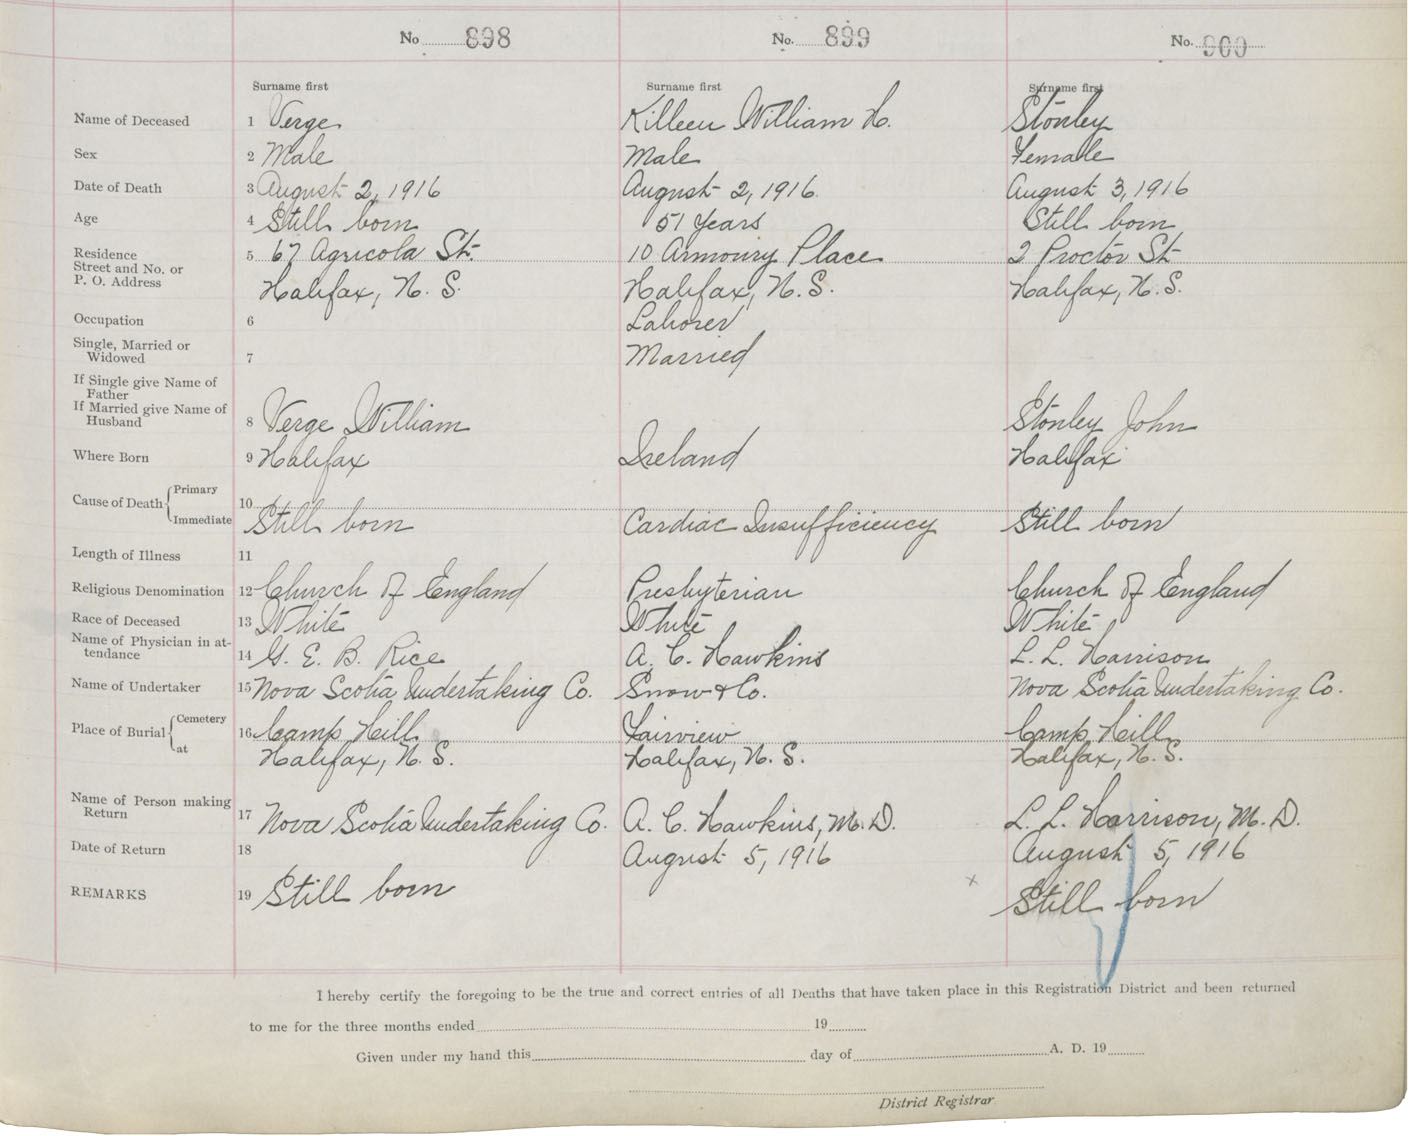 No 898 No. 899 No. 900
Surname first Surname first Surname first
Name of Deceased 1 Verge Killeen William H. Stonley
Sex 2 Male Male Female
Date of Death 3 August 2, 1916 August 2, 1916. August 3, 1916
Age 4 Still born 51 Years Still born
Residence 5 67 Agricola St. 10 Armoury Place 2 Proctor St
Street and No. or
P. O. Address Halifax, N. S. Halifax, N. S. Halifax, N. S.
Occupation 6 Laborer
Single, Married or
Widowed 7 Married
If Single give Name of
Father
If Married give Name of
Husband 8 Verge William Stonley John
Where Born 9 Halifax Ireland Halifax
Cause of Death Primary
Immediate 10 Still born Cardiac Insufficiency Still born
Length of Illness 11
Religious Denomination 12 Church of England Presbyterian Church of England
Race of Deceased 13 White White White
Name of Physician in at-
tendance 14 G. E. B. Rice A. C. Hawkins L. L. Harrison
Name of Undertaker 15 Nova Scotia Undertaking Co. Snow & Co. Nova Scotia Undertaking Co.
Place of Burial Cemetery 16 Camp Hill Fairview Camp Hill
at Halifax, N. S. Halifax, N. S. Halifax, N. S.
Name of Person making
Return 17 Nova Scotia Undertaking Co. A. C. Hawkins, M. D. L. L. Harrison, M. D.
Date of Return 18 August 5, 1916 August 5, 1916
REMARKS 19 Still born x Still born
I hereby certify the foregoing to be the true and correct entries of all Deaths that have taken place in this Registration District and been returned
to me for the three months ended 19
Given under my hand this day of A. D. 19
District Registrar